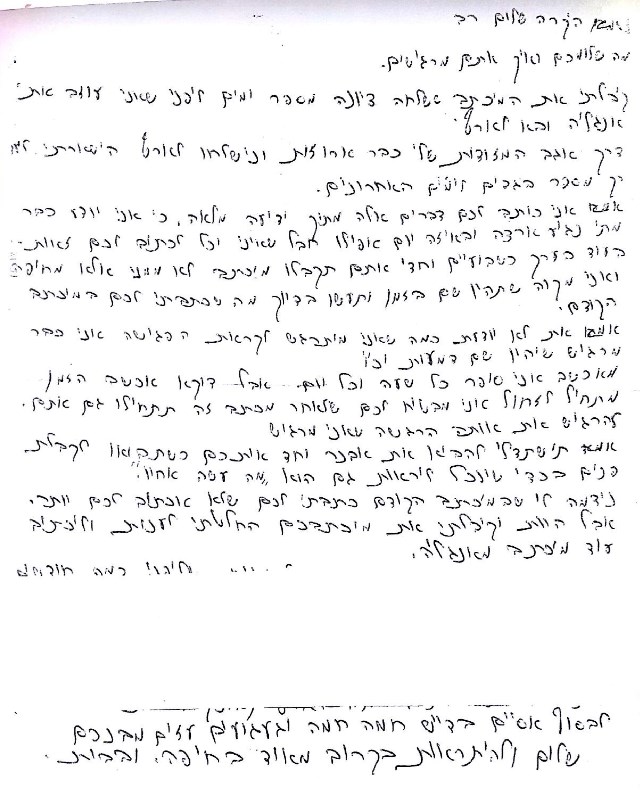 אמא היקרה שלום רב
מה שלומכם ואיך אתם מרגישים.
קיבלתי את המיכתב ששלחה דיונה מספר ימים ליפני שאני עוזב את
אנגליה והבא לארץ
דרך אגב המזודות שלי כבר ארוזות ונישלחו לארץ הישארתי לי
רק מספר בגדים לימים האחרונים.
אמא אני כותב לכם דברים אלה מתוך ידיעה מלאה, כי אני יודע כבר
מתי נגיע ארצה ובאיזה יום אפילו חבל שאיני יכל לכתוב לכם זאת
בעוד בערך כשבועיים וחצי אתם תקבלו מיכתב לא ממני אלא מחיפה
ואני מקוה שתהיו שם בזמן ותעשו בדיוק מה שכתבתי לכם במיכתב
הקודם.
אמא את לא יודעת כמה שאני מיתרגש לקראת הפגישה אני כבר
מרגיש שיהיו שם דמעות וכו'
מאכניב אני סופר כל שעה וכל יום. אבל דוקא אכשיו הזמן
מתחיל לזחול אני מבטיח לכם שלאחר מכתב זה תתחילו גם אתם
להרגיש את אותה הרגשה שאני מרגיש
אמא תישתדלי להביא את אבנר יחד איתכם כשתבואו לקבלת
פנים בכדי שיוכל ליראות גם הוא "מה עשה אחיו".
נידמה לי שבמיכתב הקודם כתבתי לכם שלא אכתוב לכם יותר.
אבל היות וקיבלתי את מיכתבכם החלטתי לענות וליכתוב
עוד מיכתב מאנגליה.
כמה חודשים
לבסוף אסיים בד"ש חמה חמה וגעגועים עזים מבנכם
שלום ולהיתראות בקרוב מאוד בחיפה. ובבית.